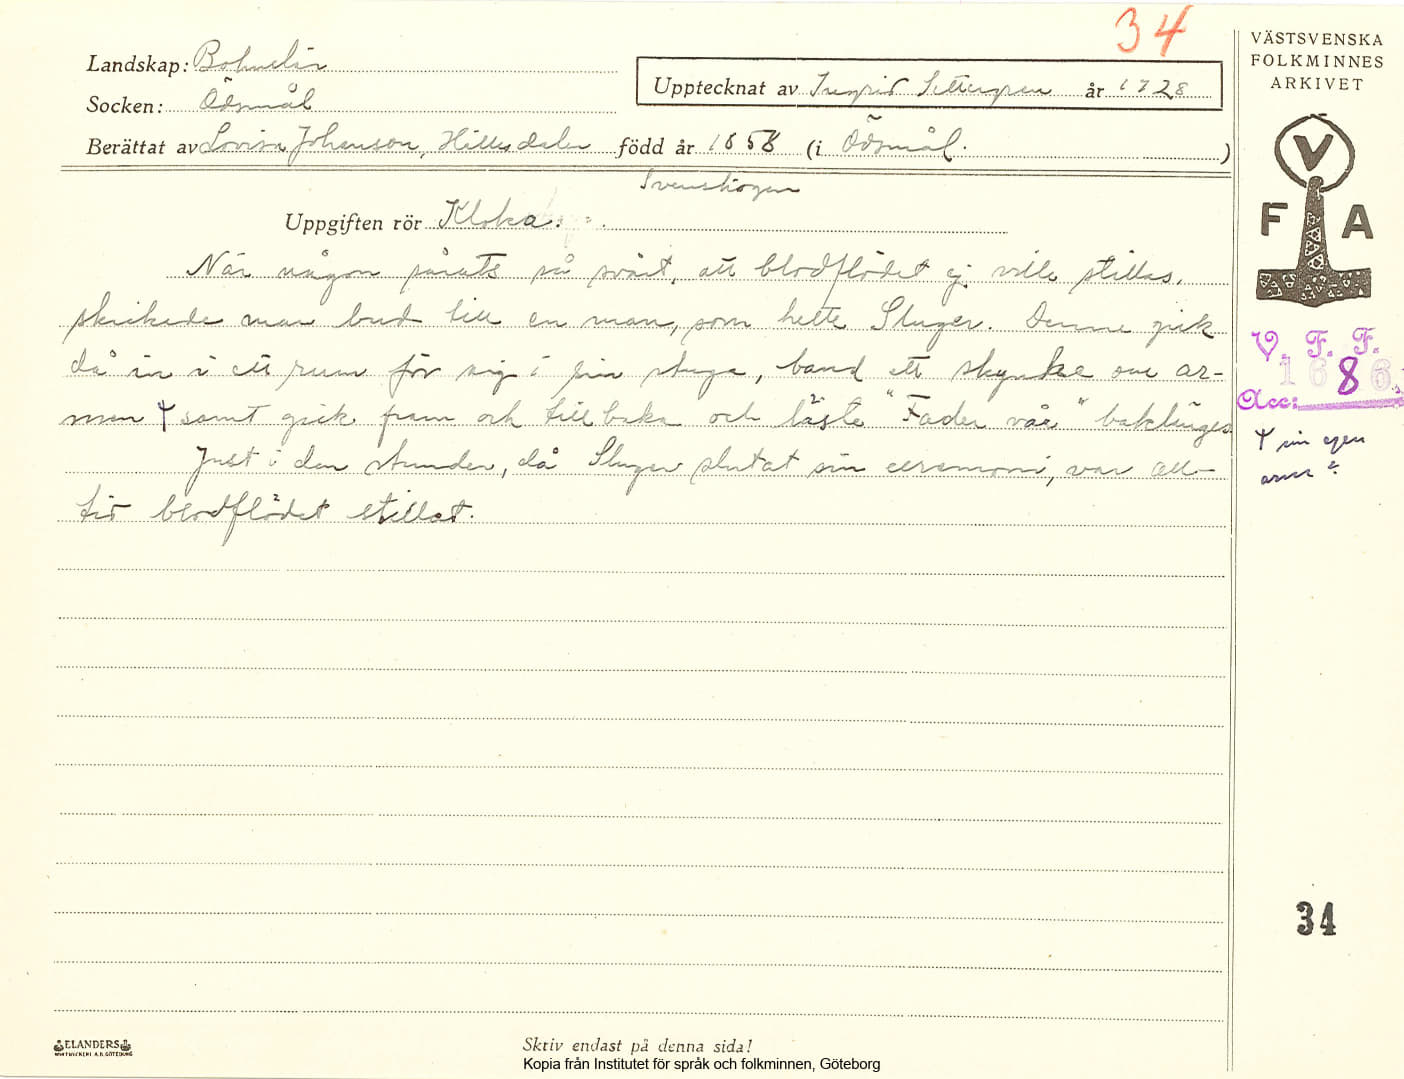 34
Landskap: Bohuslän
Socken: Ödsmål
Upptecknat av Ingrid Settergren år 1928
Berättat av Lovisa Johansson, Hillesdalen född år 1858 (i Ödsmål.)
Svenshögen
Uppgiften rör Kloka.
När någon sårats så svårt, att blodflödet ej ville stillas,
skickade man bud till en man, som hette Sluger. Denne gick
då in i ett rum för sig i sin stuga, band ett skynke om ar-
men ϯ samt gick fram och tillbaka och läste "Fader vår" baklänges.
Just i den stunden, då Sluger slutat sin ceremoni, var all-
tid blodflödet stillat.
VÄSTSVENSKA
FOLKMINNES
ARKIVET
V
F A
V. F. F.
1686
Acc:
ϯ sin egen
arm?
34
ELANDERS
Skriv endast på denna sida!
Kopia från Institutet för språk och folkminnen, Göteborg